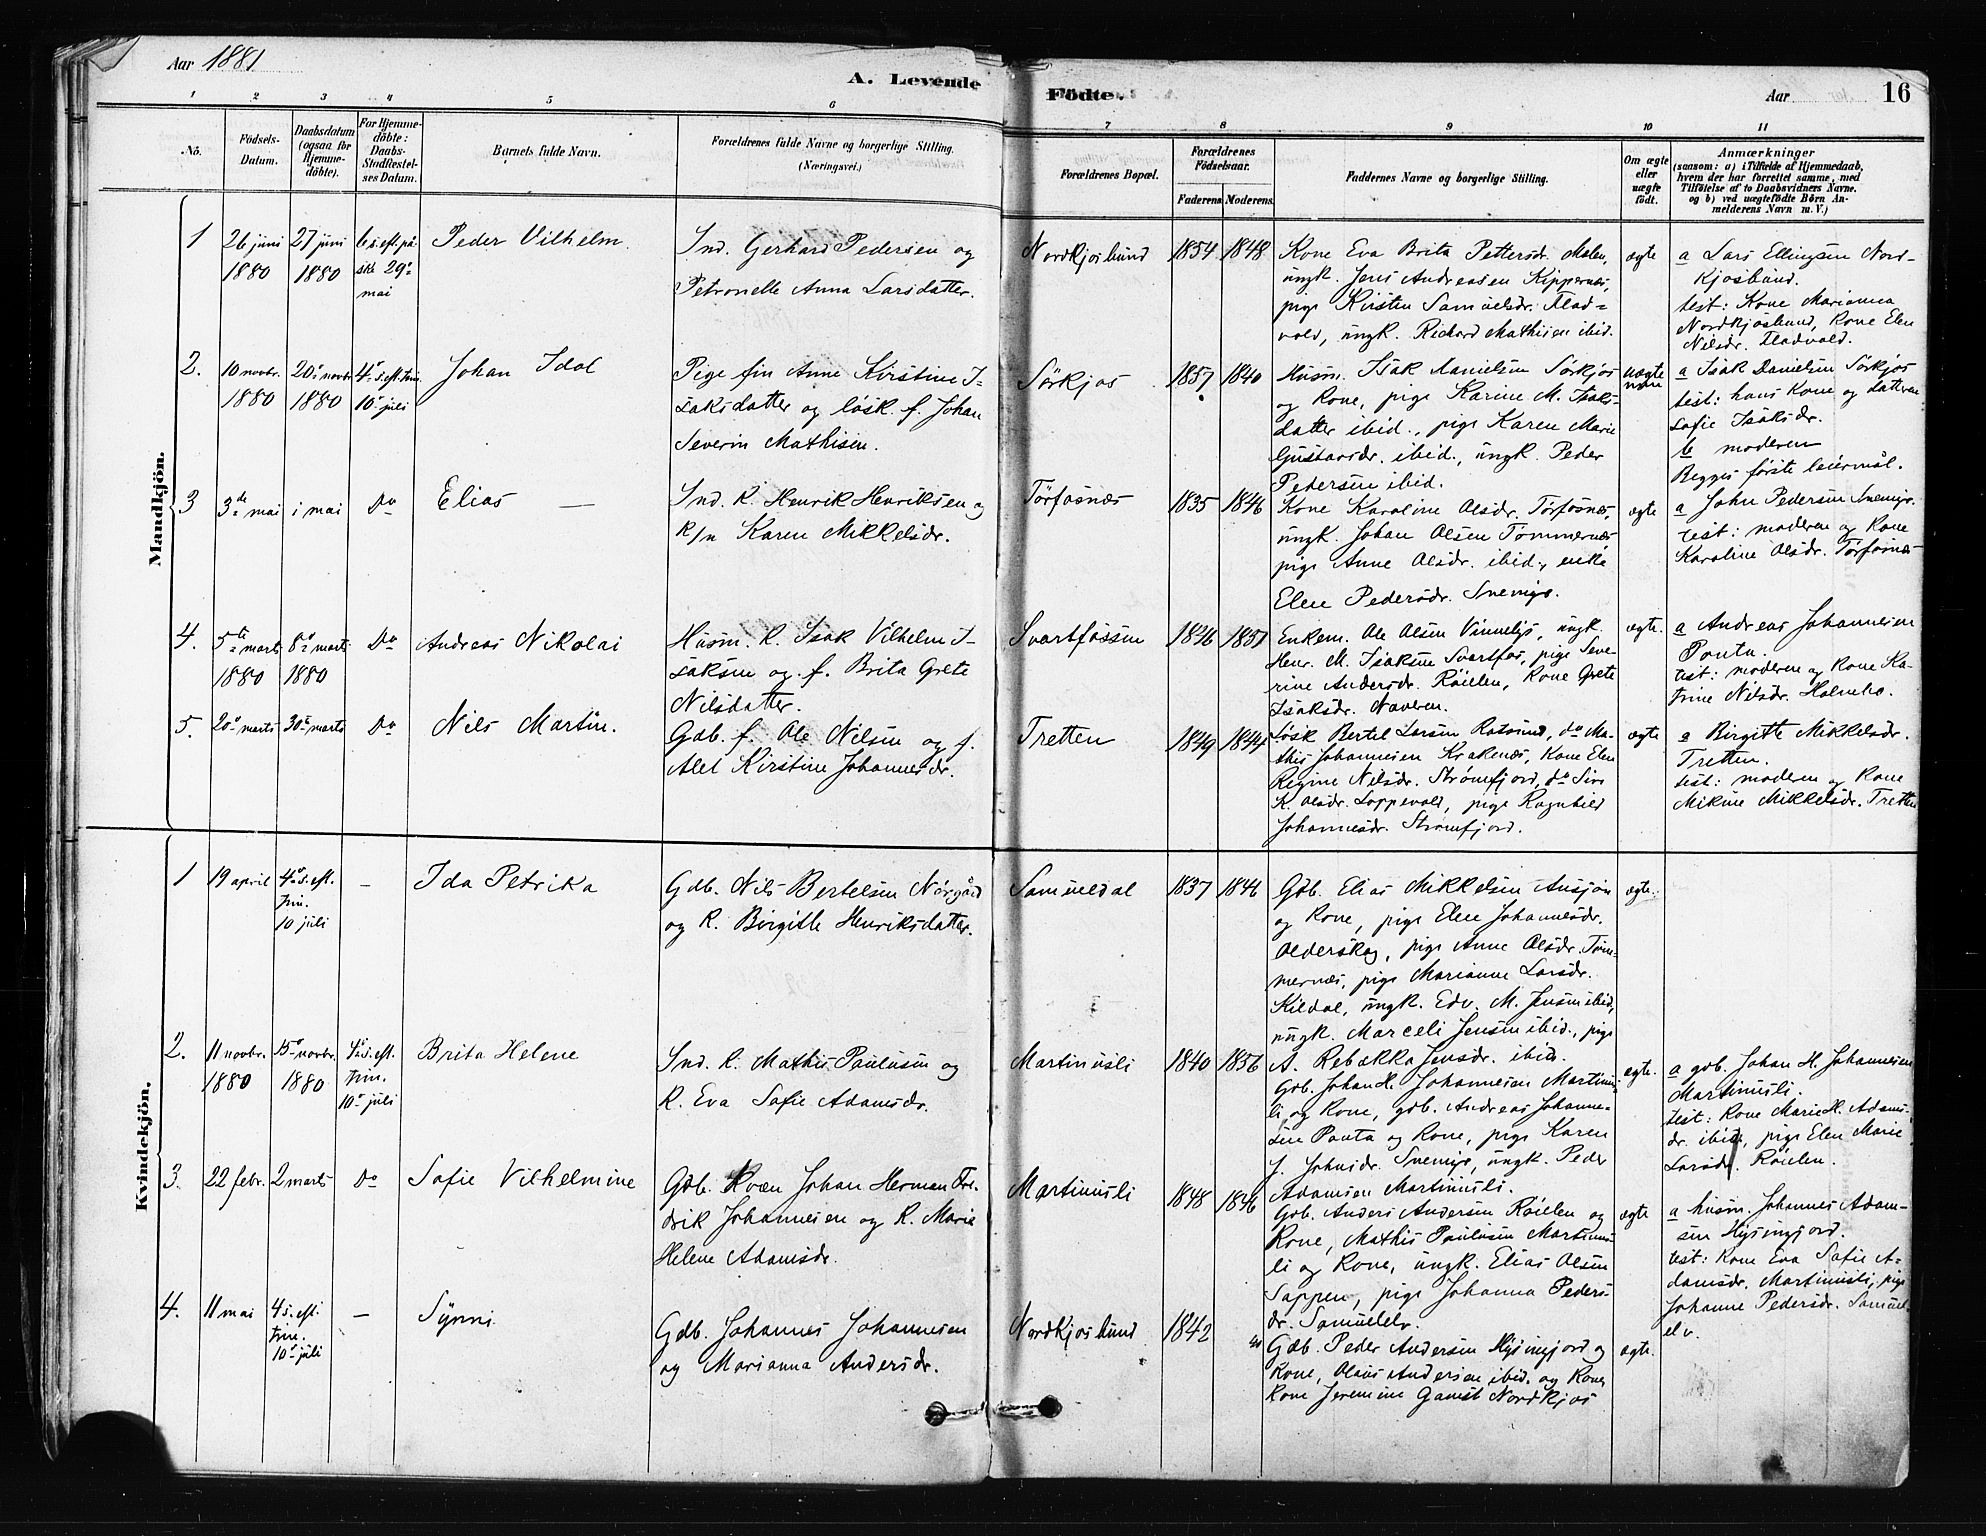 Aar 1881
A. Levende Födte.
Aar
16
1 2 3 4 5 6 7 8 9 10 11
No.
Födsels-Datum.
Daabsdatum (ogsaa for Hjemme-döbte).
For Hjemme-döbte: Daabs-Stadfæstel-ses Datum.
Barnets fulde Navn.
Forældrenes fulde Navne og borgerlige Stilling. (Næringsvei.)
Forældrenes Bopæl.
Forældrenes Födselsaar.
Faderens Moderens
Faddernes Navne og borgerlige Stilling.
Om ægte eller uægte födt.
Anmærkninger
(saasom: a) i Tilfælde af Hjemmedaab,
hvem der har forrettet samme, med
Tilföielse af to Daabsvidners Navne.
og b) ved uægtefödte Börn An-
melderens Navn m. V.)
Mandkjön.
1
26 juni 1880
27 juni 1880
6 s. eft. på-
ske 29de
mai
Peder Vilhelm.
Ind. Gerhard Pedersen og
Petronelle Anna Larsdatter.
Nordkjosbund
1854 1848
Kone Eva Brita Pettersdr. Malen,
ungk. Jens Andreasen Kippernes,
pige Kirsten Samuelsdr. Flad-
vold, ungk. Richard Mathisen ibid.
ægte
a Lars Ellingsen Nord-
kjosbund.
test: Kone Marianna
Nordkjosbund, Kone Elen
Nilsdr. Fladvold.
2.
10 novbr. 1880
20 novbr 1880
4 s. eft. trin.
10 juli
Johan Idol
Pige fin Anne Kirstine I-
saksdatter og løsk. f. Johan
Severin Mathisen.
Sörkjos
1857 1840
Husm. Isak Danielsen Sörkjos
og Kone, pige Karine M. Isaks-
datter ibid., pige Karen Marie
Gustavsdr. ibid., ungk. Peder
Pedersen ibid.
uægte
a Isak Danielsen Sörkjos
test: hans Kone og datteren
Sofie Isaksdr.
b moderen
Begges förste leiermål.
3
3de mai
i mai
Do
Elias —
Ind. K. Henrik Henriksen og
K/n Karen Mikkelsdr.
Törfosnæs
1835 1846
Kone Karoline Olsdr. Törfosnes,
ungk. Johan Olsen Tömmernes
pige Anne Olsdr. ibid., enke
Elen Pedersdr. Snemyr.
ægte
a John Pedersen Snemyr.
test: moderen og Kone
Karoline Olsdr. Törfosnes
4.
5te marts 1880
8de marts 1880
Do
Andreas Nikolai
Husm. K. Isak Vilhelm I-
saksen og f. Brita Grete
Nilsdatter.
Svartfossen
1826 1857
Enkem. Ole Olsen Vinnelys, ungk.
Henr. M. Isaksen Svartfos, pige Seve-
rine Andersdr. Röielen, Kone Grete
Isaksdr. Naveren.
ægte.
a Andreas Johannesen
Ponta.
test: moderen og Kone Ka-
trine Nilsdr. Holmebo.
5.
20 marts
30 marts
Do
Nils Martin.
Gdb. f. Ole Nilsen og f.
Alet Kirstine Johannesdr.
Tretten
1849 1844
Løsk Bertel Larsen Rotsund, do Ma-
this Johannesen Krakenes, Kone Elen
Regine Nilsdr. Strömfjord, do Siri
K. Olsdr. Loppevold, pige Ragnhild
Johannesdr. Strömfjord.
ægte
a Birgitte Mikkelsdr.
Tretten.
test: moderen og Kone
Mikine Mikkelsdr. Tretten
Kvindekjön.
1
19 april
4 s. eft.
trin.
10 juli
—
Ida Petrika
Gdb. Nils Bertelsen Nørgård
og K. Birgitte Henriksdatter.
Samueldal
1837 1844
Gdb. Elias Mikkelsen Ansjon
og Kone, pige Elen Johannesdr.
Olderskog, pige Anne Olsdr. Töm-
mernæs, pige Marianne Larsdr.
Kildal, ungk. Edv. M. Jensen ibid,
ungk. Marceli Jensen ibid., pige
A. Rebekka Jensdr. ibid.
ægte.
2.
11 novbr. 1880
15 novbr. 1880
4 s. eft.
trin.
10 juli
Brita Helene
Ind. K. Mathis Paulusen og
K. Eva Sofie Adamsdr.
Martinusli
1840 1856
Gdb. Johan H. Johannesen Martinus-
li og Kone, gdb. Andreas Johanne-
sen Ponta og Kone, pige Karen
J. Johnsdr. Snemyr, ungk. Peder
Adamsen Martinusli.
ægte.
a gdb. Johan H. Johannesen
Martinusli.
test: Kone Marie H. Adams-
dr. ibid., pige Elen Marie
Larsdr. Röielen.
3.
22 febr.
2 marts
Do
Sofie Vilhelmine
Gdb. Kvæn Johan Herman Fre-
drik Johannesen og K. Marie
Helene Adamsdr.
Martinusli
1848 1846
Gdb. Anders Andersen Röielen og
Kone, Mathis Paulusen Martinus-
li og Kone, ungk. Elias Olsen
Sappen, pige Johanna Peders-
dr. Samuelelv.
ægte
a husm. Johannes Adam-
sen Hysingjord.
test: Kone Eva Sofie A-
damsdr. Martinusli, pige
Johanne Pedersdr. Samuel-
elv.
4.
11 mai
4 s. eft.
trin.
10 juli
—
Synni
Gdb. Johannes Johannesen
og Marianna Andersdr.
Nordkjosbund
1842
Gdb. Peder Andersen Hysingjord og
Kone, Olaus Andersen ibid. og Kone
Kone Jeremine Gamst Nordkjos
ægte.